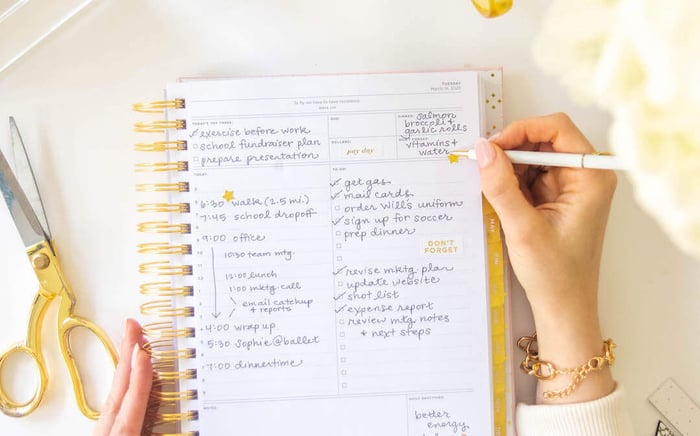 TUESDAY
TODAY'S TOP THREE:
exercise before work
school fundraiser plan
prepare presentation
DOLLARS:
pay day
DINNER:
salmon
broccoli &
garlic rolls
vitamins &
water
TODAY
6:30 walk (2.5 mi.)
7:45 school dropoff
9:00 office
10:30 team mtg.
12:00 lunch
1:00 mktg call
email catchup
& reports
4:00 wrap up
5:30 Sophie @ ballet
7:00 dinnertime
TO DO:
get gas
mail cards
order Will's uniform
sign up for soccer
prep dinner
DON'T
FORGET
revise mktg plan
update website
shot list
expense report
review mtg notes
& next steps
NOTES
better
energy
MAY